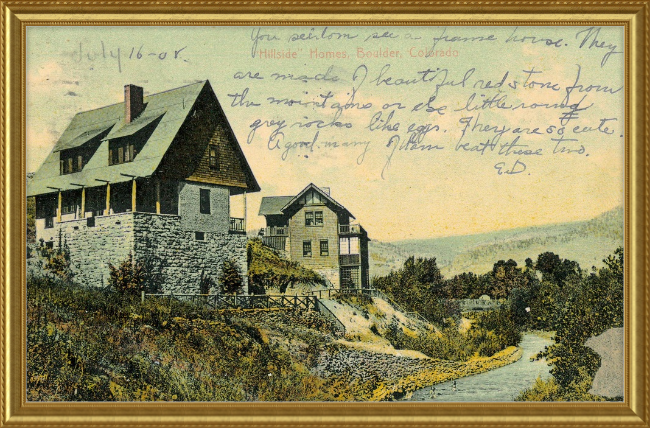 July 16-08.
You seldom see a frame house. They
"Hillside" Homes, Boulder, Colorado
are made of beautiful red stone from
the mountains or else little round
grey rocks like eggs. They are so cute.
A good many of them beat these two.
E.D.